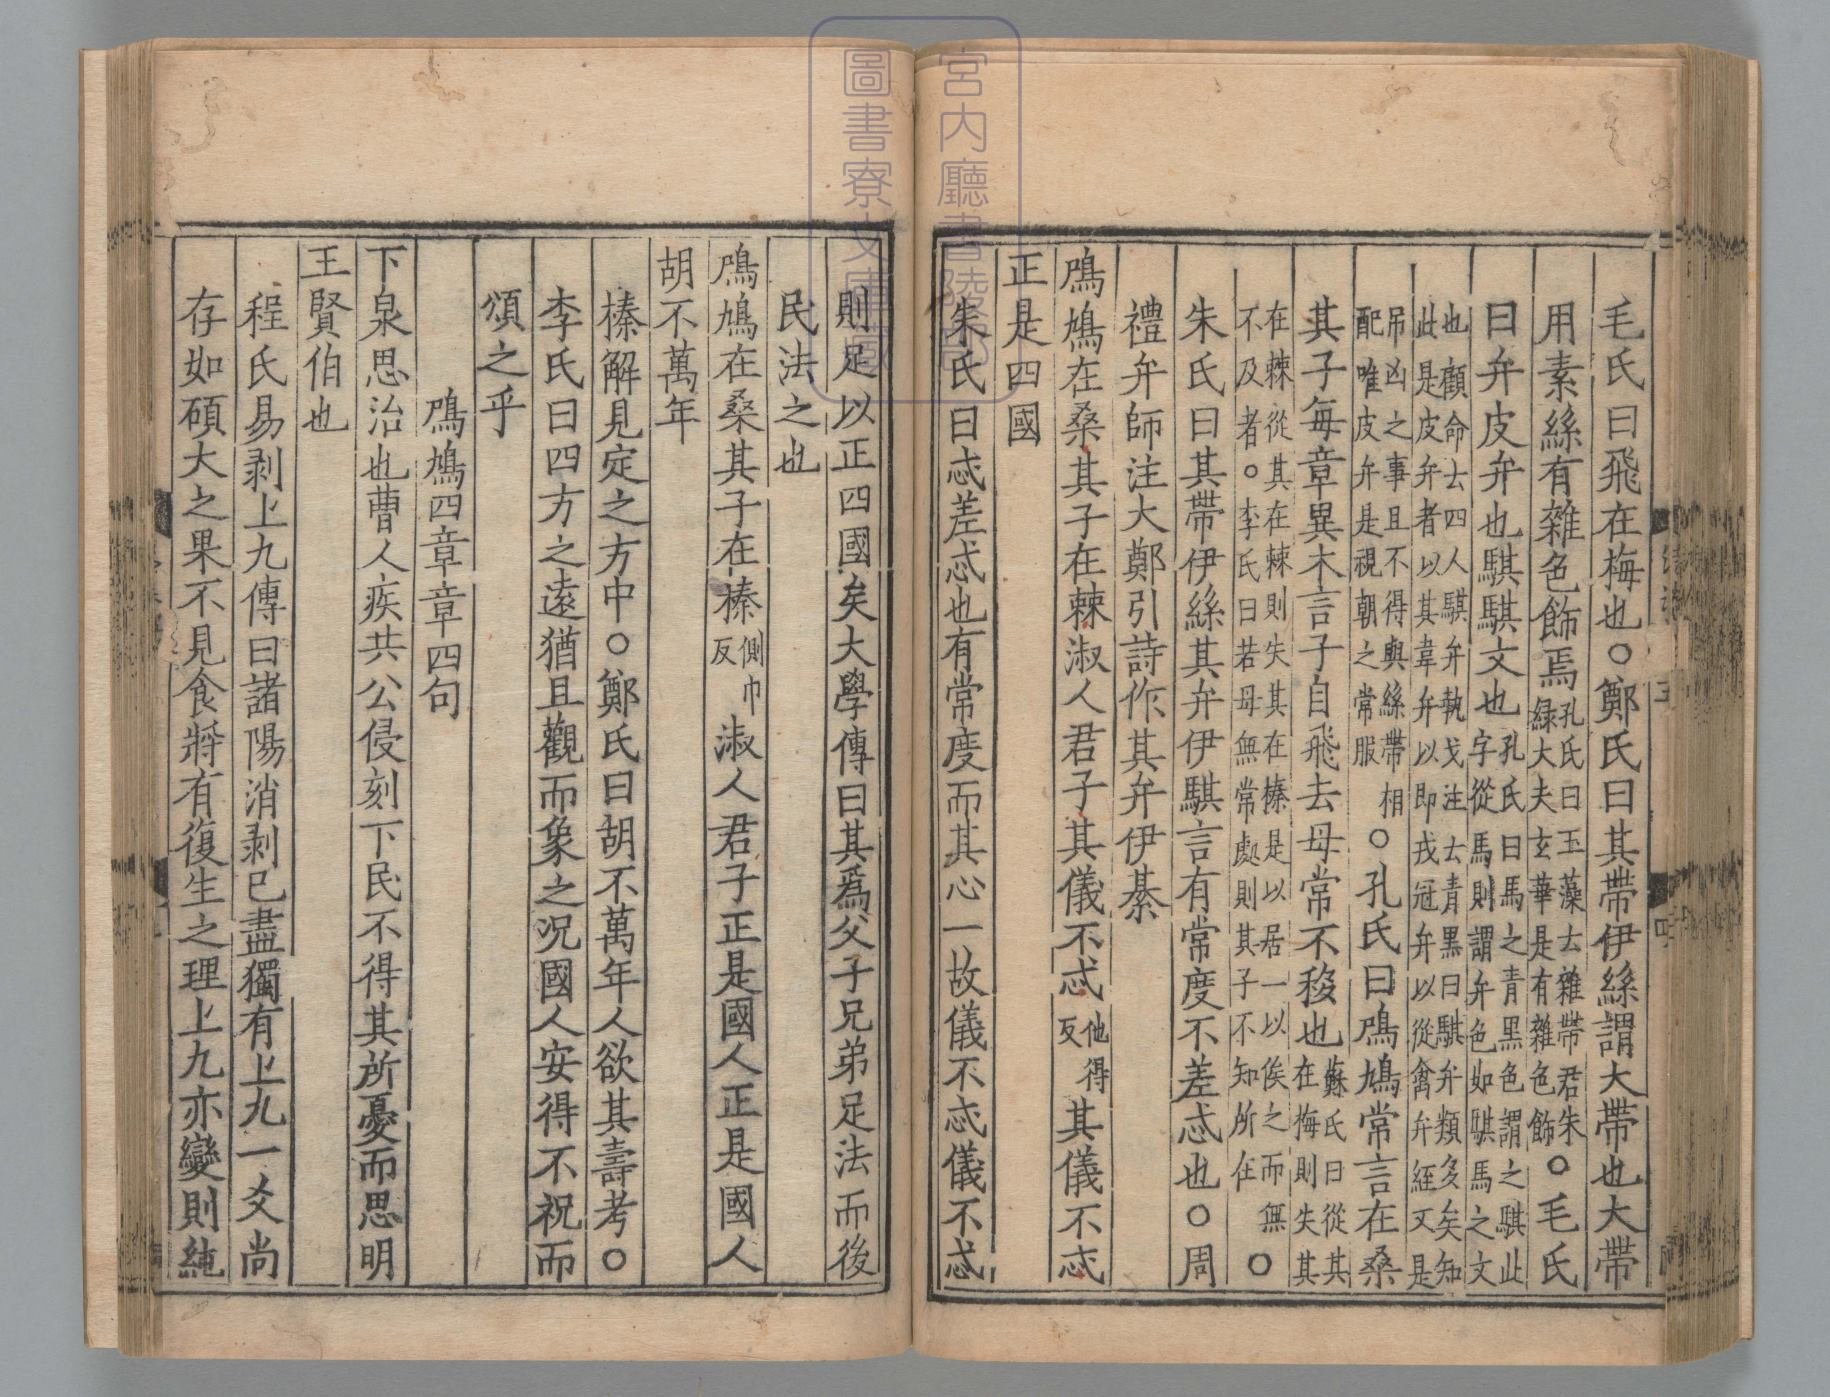 宮内廳書陵部
圖書寮文庫藏
毛氏曰飛在梅也○鄭氏曰其帶伊絲謂大帶也大帶
用素絲有雜色飾焉孔氏曰玉藻士雜帶君朱緑大夫玄華是有雜色飾○毛氏
曰弁皮弁也騏騏文也孔氏曰馬之青黑色謂之騏此字從馬則謂弁色如騏馬之文
也顧命云四人騏弁執戈注云青黑曰騏弁類多矣知
此是皮弁者以其韋弁以即戎冠弁以從禽弁絰又是
弔凶之事且不得與絲帶相配唯皮弁是視朝之常服○孔氏曰鳲鳩常言在桑
其子每章異木言子自飛去母常不移也蘇氏曰從其在梅則失其
在棘從其在棘則失其在榛是以居一以俟之而無不及者○李氏曰若母無常處則其子不知所在○
朱氏曰其帶伊絲其弁伊騏言有常度不差忒也○周
禮弁師注大鄭引詩作其弁伊綦
鳲鳩在桑其子在棘淑人君子其儀不忒他得反其儀不忒
正是四國
朱氏曰忒差忒也有常度而其心一故儀不忒儀不忒
則足以正四國矣大學傳曰其爲父子兄弟足法而後
民法之也
鳲鳩在桑其子在榛側巾反淑人君子正是國人正是國人
胡不萬年
榛解見定之方中○鄭氏曰胡不萬年人欲其壽考○
李氏曰四方之遠猶且觀而象之況國人安得不祝而
頌之乎
鳲鳩四章章四句
下泉思治也曹人疾共公侵刻下民不得其所憂而思明
王賢伯也
程氏易剥上九傳曰諸陽消剥已盡獨有上九一爻尚
存如碩大之果不見食將有復生之理上九亦變則純